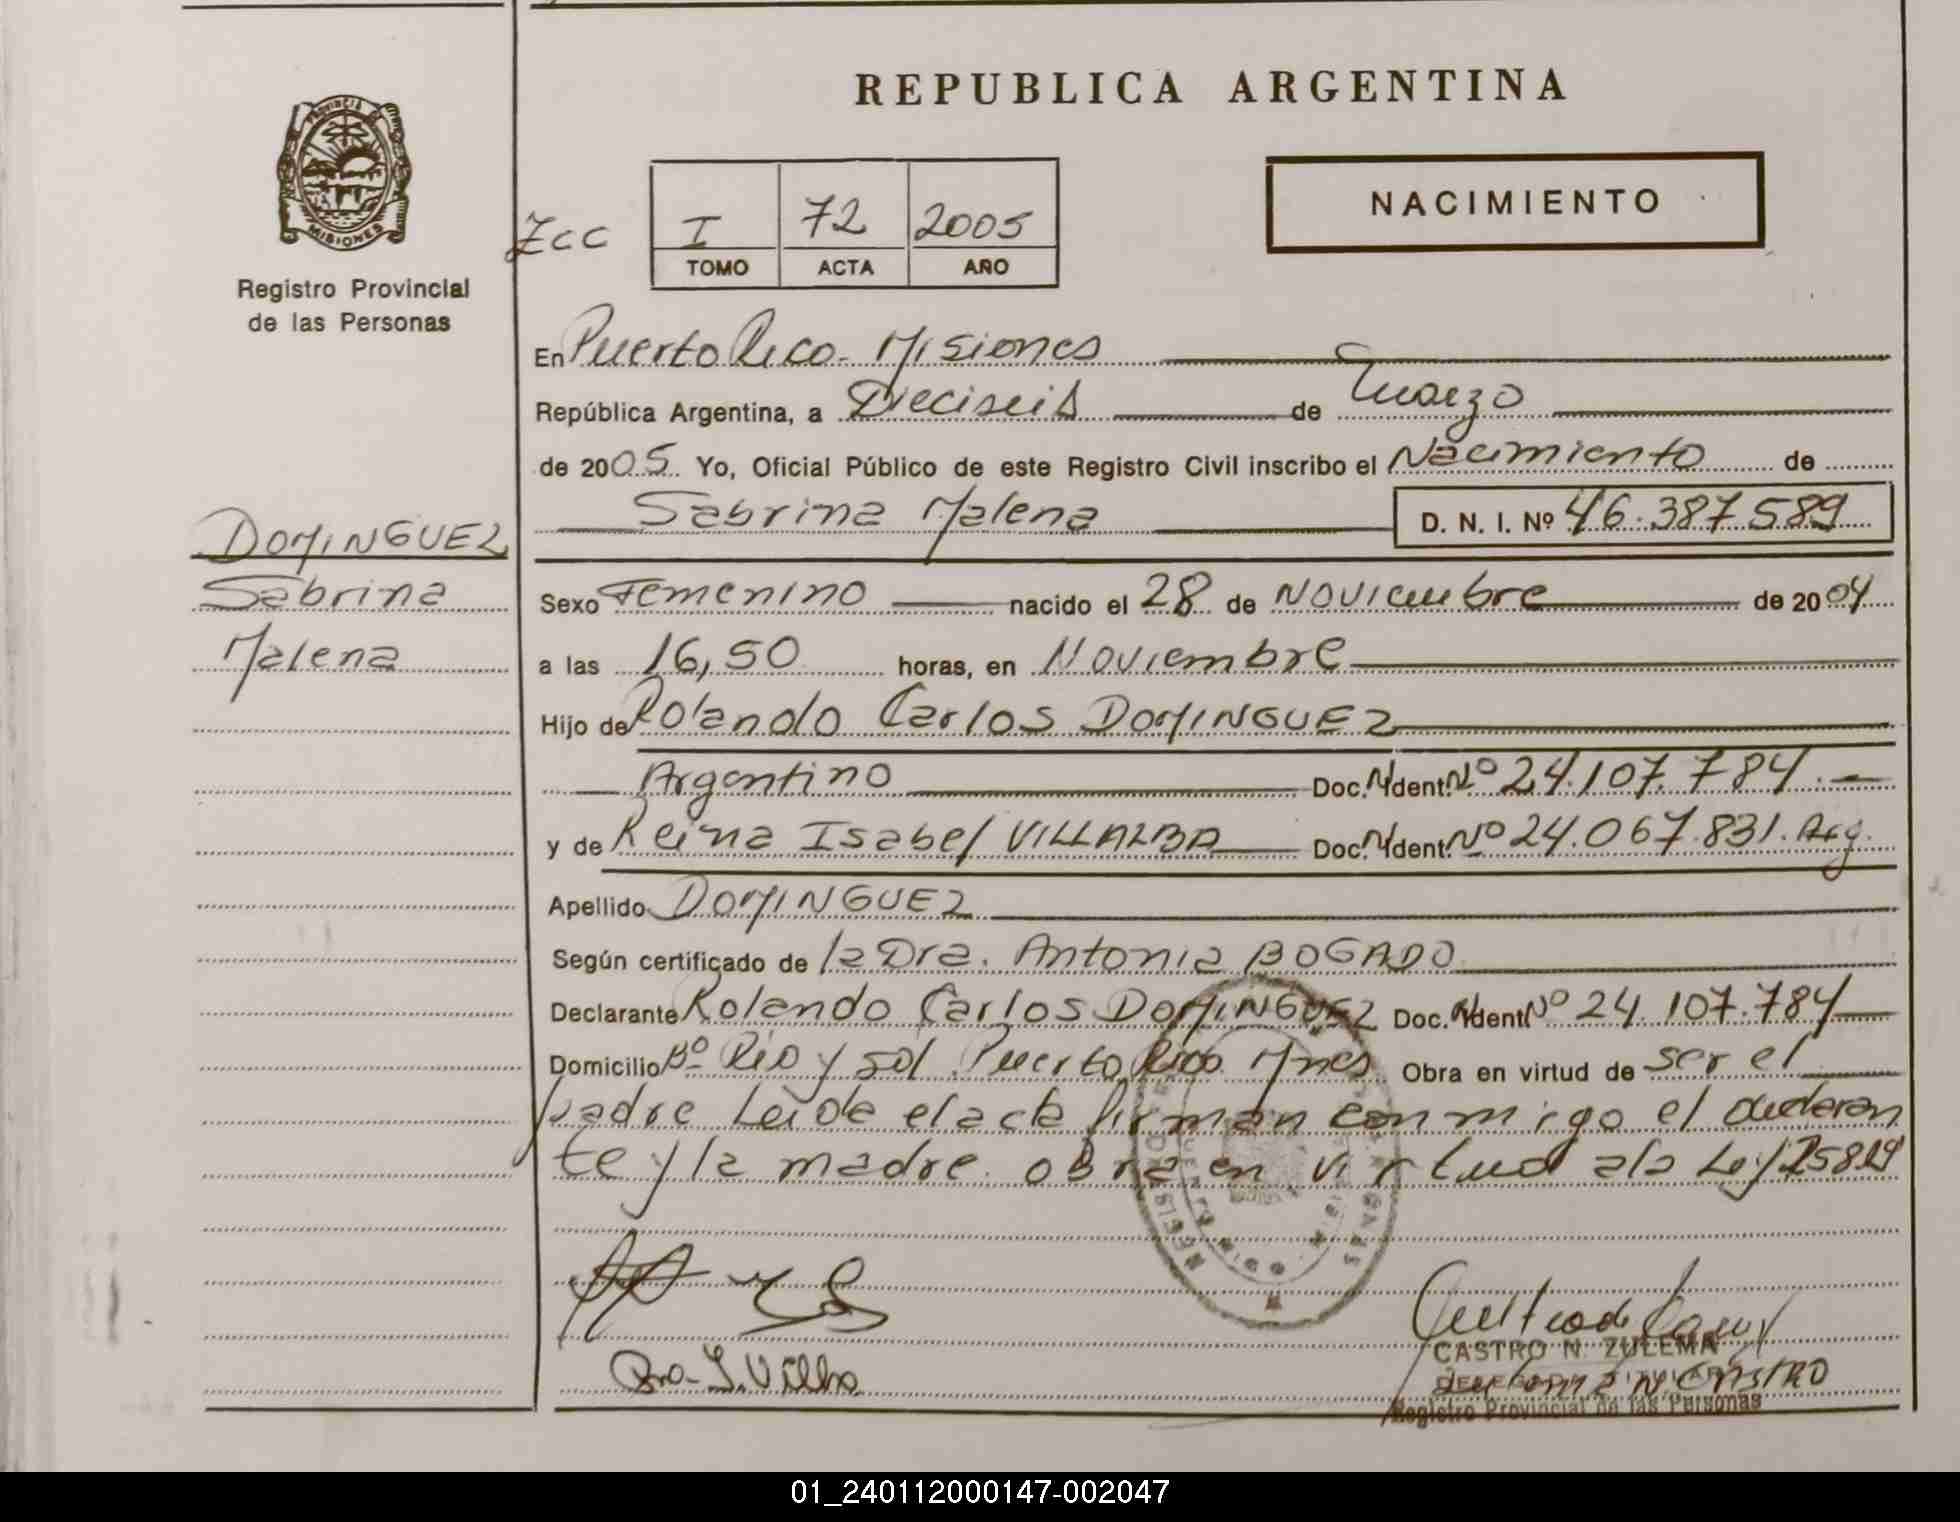 REPUBLICA ARGENTINA
PROVINCIA
MISIONES
Registro Provincial
de las Personas
NACIMIENTO
Zcc I 72 2005
TOMO ACTA AÑO
En Puerto Rico - Misiones
República Argentina, a Dieciseis de Marzo
de 2005 Yo, Oficial Público de este Registro Civil inscribo el Nacimiento de
Sabrina Malena D. N. I. Nº 46.387.589
DOMINGUEZ
Sabrina
Malena
Sexo Femenino nacido el 28 de Noviembre de 2004
a las 16,50 horas, en Noviembre
Hijo de Rolando Carlos DOMINGUEZ
Argentino Doc. Ident. Nº 24.107.784.-
y de Reina Isabel VILLALBA Doc. Ident. Nº 24.067.831. Arg.
Apellido DOMINGUEZ
Según certificado de la Dra. Antonia BOGADO
Declarante Rolando Carlos DOMINGUEZ Doc. Ident. Nº 24.107.784
Domicilio Bº Rio y sol Puerto Rico Mnes Obra en virtud de ser el
padre Leida el acta firman conmigo el declaran
te y la madre. obra en virtud a la Ley 25819
CASTRO N. ZULEMA
Registro Provincial de las Personas
01_240112000147-002047